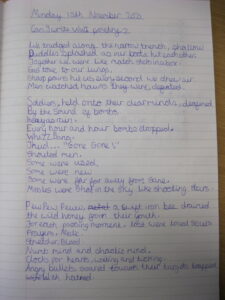 Monday 18th November 2013
Can I write war poetry?
We trudged along the narrow trench, shallow
Puddles splashed as our boots hit another
Together we were like match sticks in a box
Gas tore to our lungs.
Sharp pains hit us every second we drew air
Men watched hours they were, defeated.
Soldiers, held onto their dear minds, deafened
By the sound of bombs.
Every hour and hour bombs dropped.
Whizz Bang.
Thud... "Gone Gone!"
Shouted men.
Some were used,
Some were new
Some were far far away from sane.
Misiles were shot in the sky like shooting stars.
Pew Pew Pewu, a swept iron bee drained
the wild honey from their youth.
For each passing moment lots were loved souls
Prayers, Made.
Stretcher, Blood
Numb mind and chaotic mind,
Clocks for hearts waiting and ticking.
Angry bullets soared towards their targets trapped
with hatred.